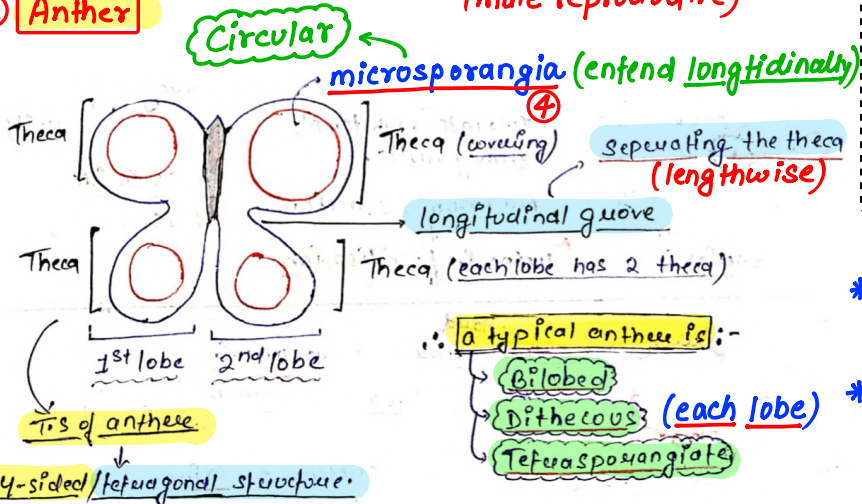 Anther
(male reproductive)
Circular
microsporangia (entend longtidinally)
④
Theca
Theca (covering)
seperating the theca
(lengthwise)
longitudinal guove
Theca
Theca (each lobe has 2 theca)
1st lobe
2nd lobe
∴ a typical anther is :-
Bilobed
Dithecous (each lobe)
Tetrasporangiate
T.S of anther
4-sided/tetragonal structure.
*
*